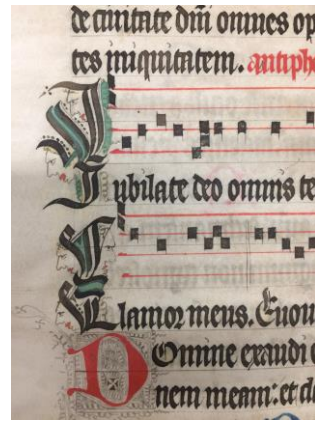 de ciuitate dni omnes op
tes iniquitatem. antiph
Iubilate deo omnis te
Clamor meus. Euou
Domine exaudi o
nem meam: et cl